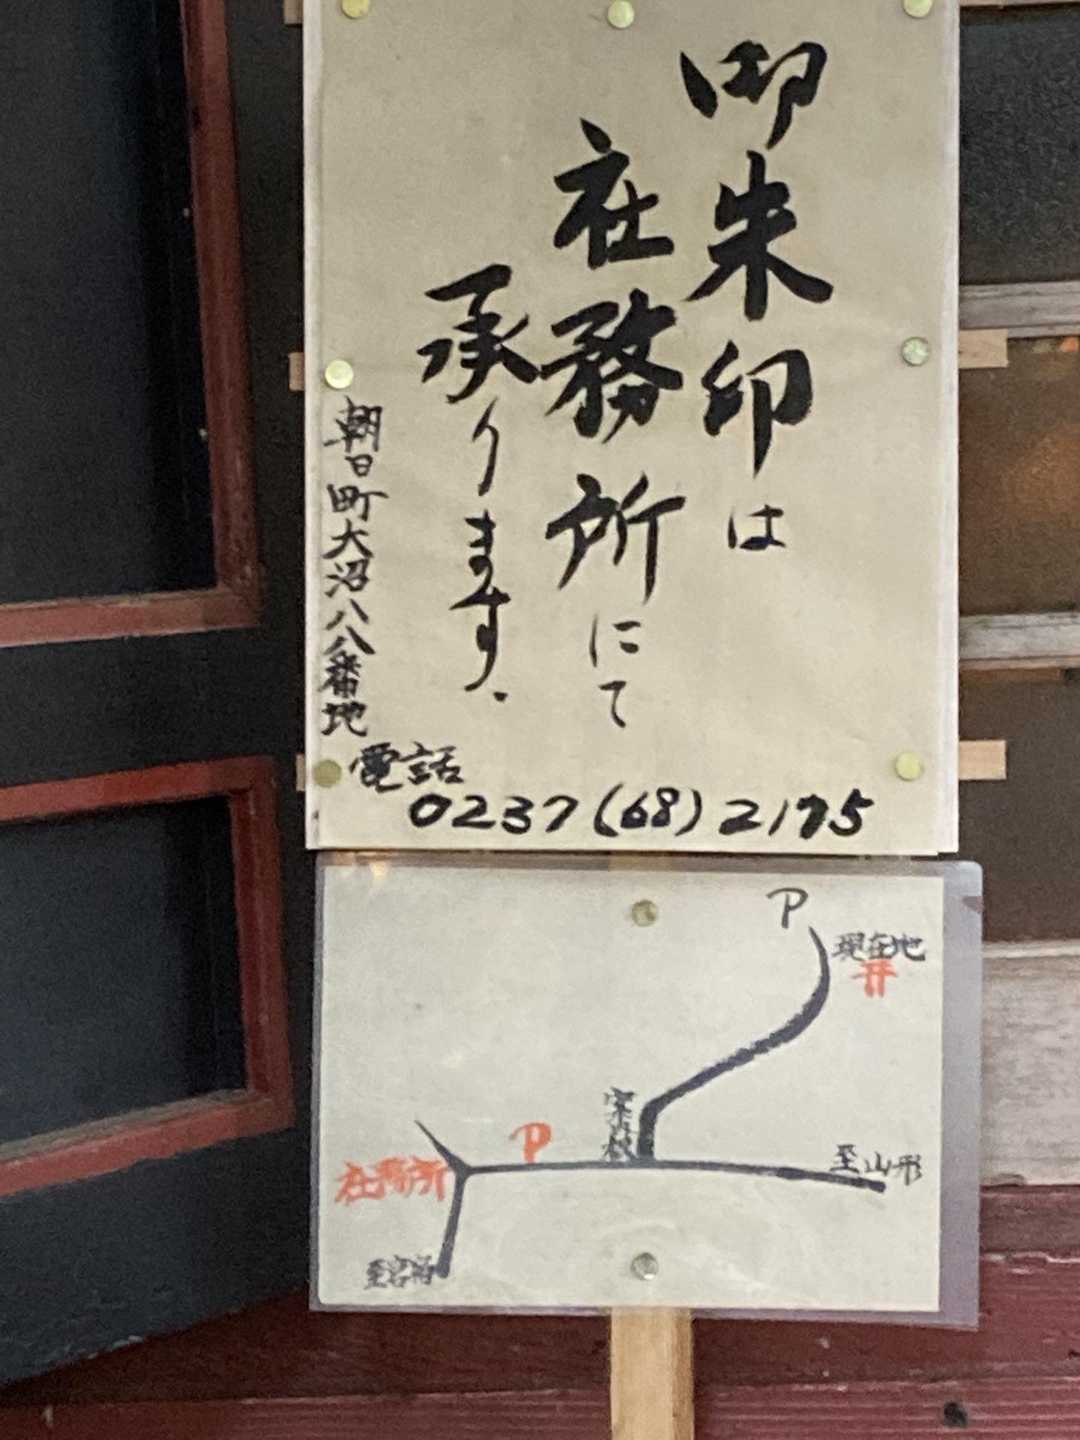 御朱印は
社務所にて
承ります.
朝日町大沼八八番地
電話
0237(68)2175
P
現在地
案内板
P
至山形
社務所
至宮宿